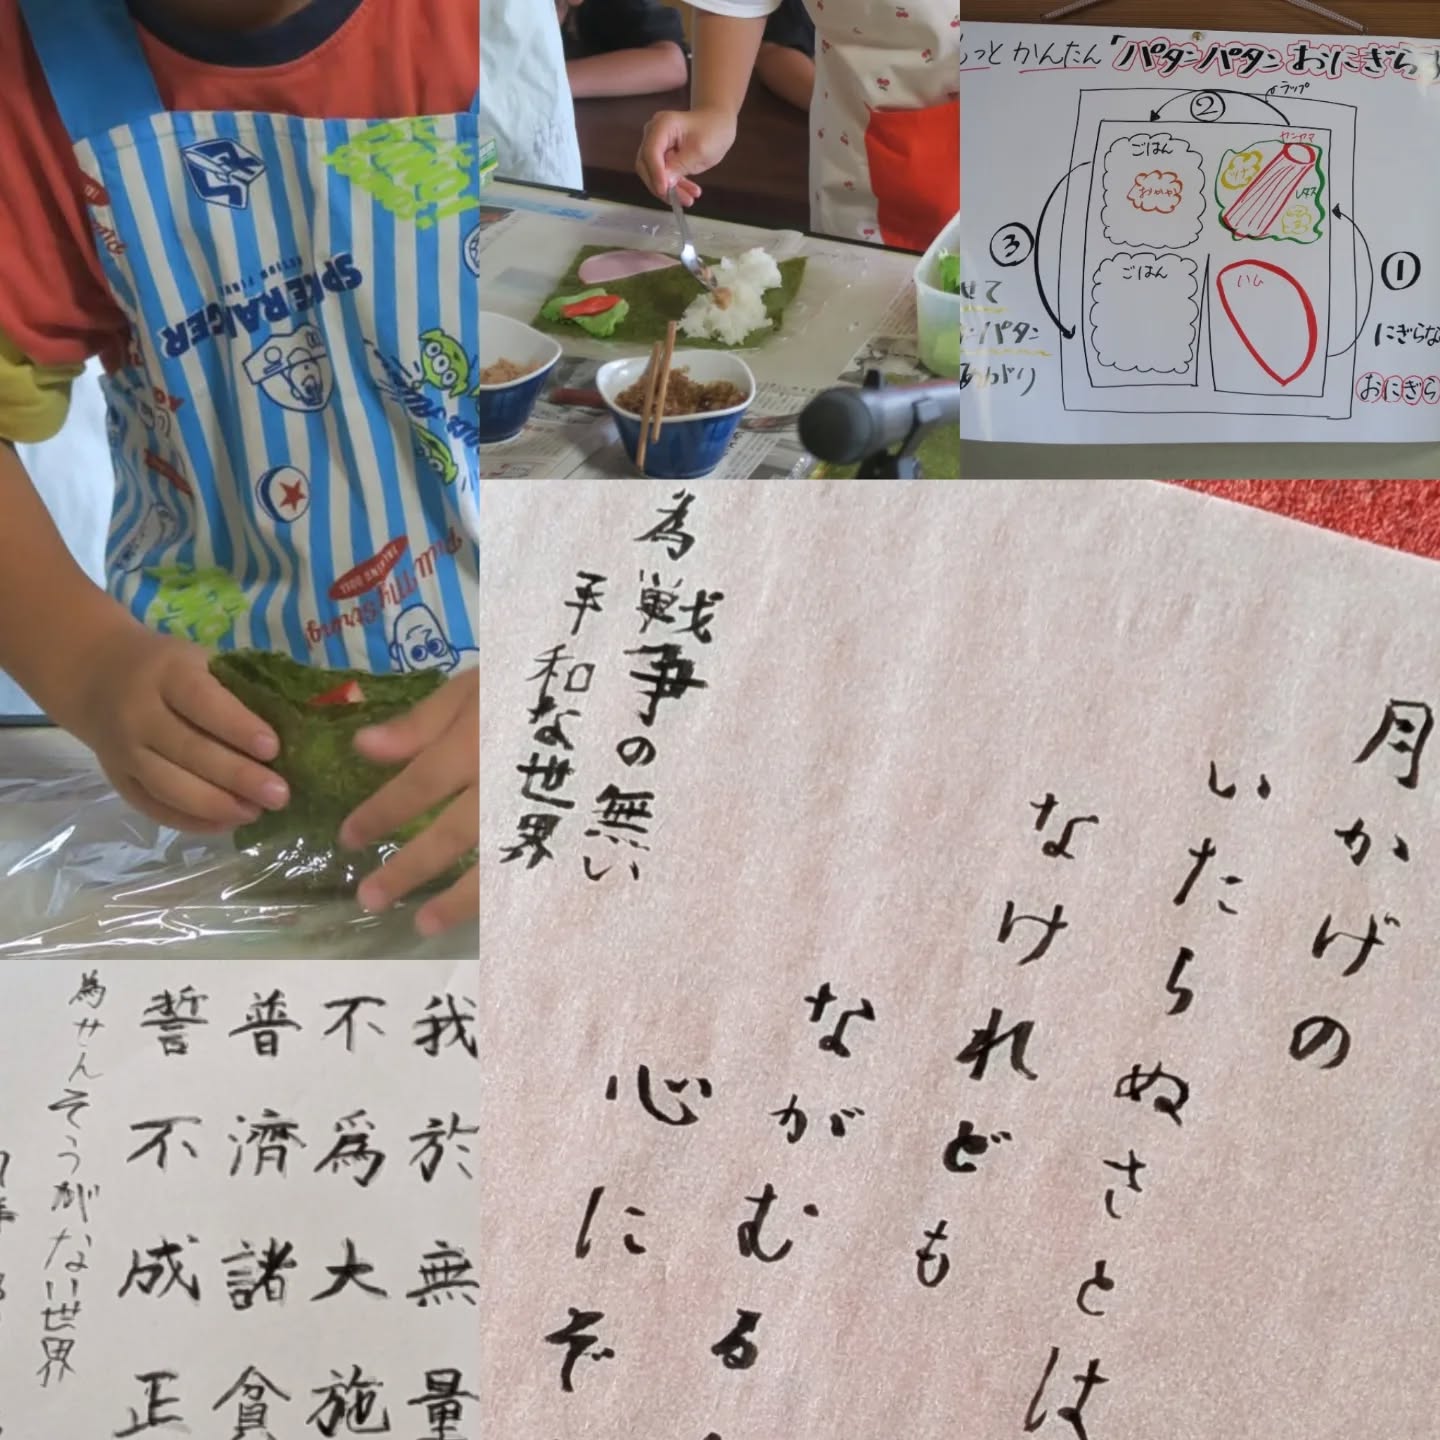 SPACE RANGER
もっとかんたん「パタンパタンおにぎらず
ラップ
②
ごはん
おかか
レタス
③
①
ごはん
ハム
せて
パタン
にぎらな
おにぎら
月かげの
いたらぬさとは
なけれども
ながむる
心にぞ
為戦争の無い
平和な世界
我於無量
不為大施
普濟諸貧
誓不成正
為せんそうがない世界